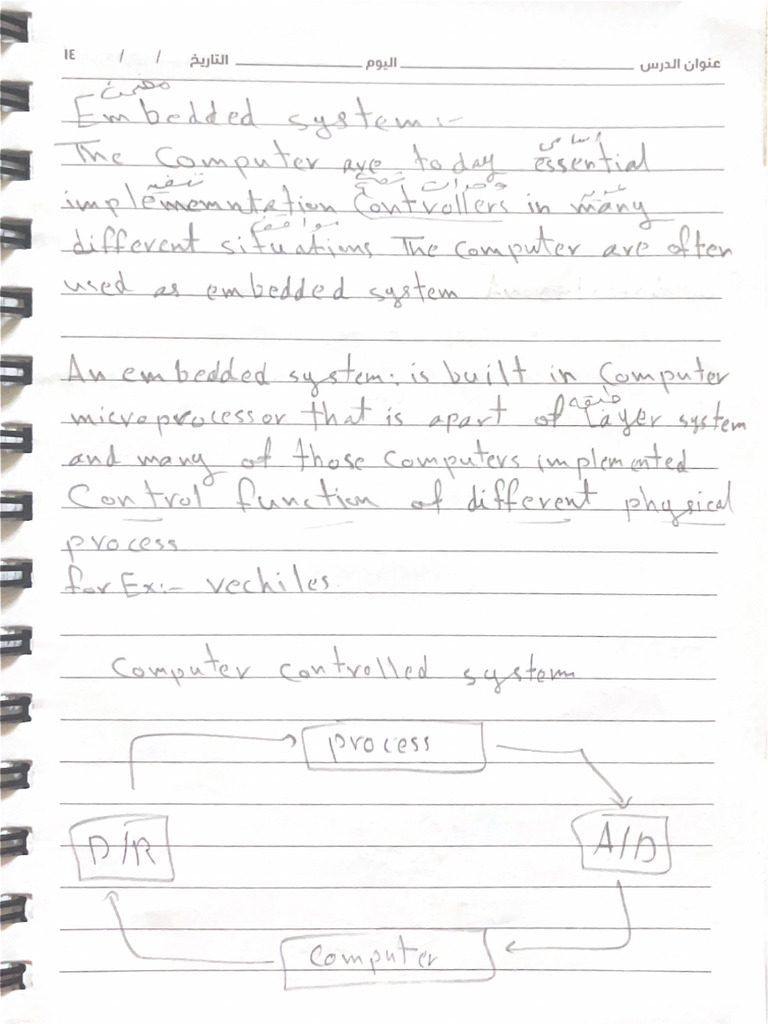 عنوان الدرس اليوم التاريخ / / ١٤
Embedded system:-
اساسي
The Computer are today essential
تنفيذ
implememntation Controllers in many
different situations The computer are often
used as embedded system
An embedded system: is built in Computer
microprocessor that is apart of layer system
and many of those computers implemented
Control function of different physical
process
for Ex:- vechiles
Computer controlled system
process
D/R A/D
Computer